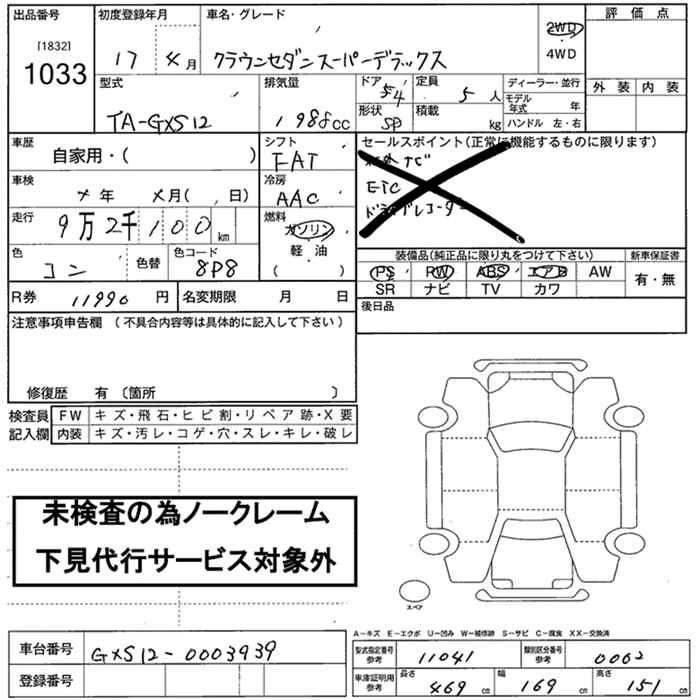 出品番号 初度登録年月 車名・グレード 評価点
[1832] 1033 17 4月 クラウンセダンスーパーデラックス 2WD ・ 4WD
外装 内装
型式 排気量 ドア 定員 ディーラー・並行
TA-GXS12 1988cc 54 5人 モデル年式 年
形状 SD 積載 kg ハンドル 左・右
車歴 シフト セールスポイント(正常に機能するものに限ります)
自家用・( ) FAT ナビ
車検 冷房 ETC
メ年 メ月( 、日) AAC ドライブレコーダー
走行 燃料
9万2千100km ガソリン
軽・油
色 色替 色コード ( )
コン 8P8
装備品(純正品に限り丸をつけて下さい) 新車保証書
PS PW ABS エアB AW 有・無
SR ナビ TV カワ
R券 11990円 名変期限 月 日
後日品
注意事項申告欄 (不具合内容等は具体的に記入して下さい)
修復歴 有 〔箇所 〕
検査員 FW キズ・飛石・ヒビ割・リペア跡・X要
記入欄 内装 キズ・汚レ・コゲ・穴・スレ・キレ・破レ
未検査の為ノークレーム
下見代行サービス対象外
スペア
A-キズ E-エクボ U-凹み W-補修跡 S-サビ C-腐食 XX-交換済
車台番号 GXS12-0003939
登録番号
型式指定番号 参考 11041 類別区分番号 参考 0062
車庫証明用 参考 長さ 469cm 幅 169cm 高さ 151cm